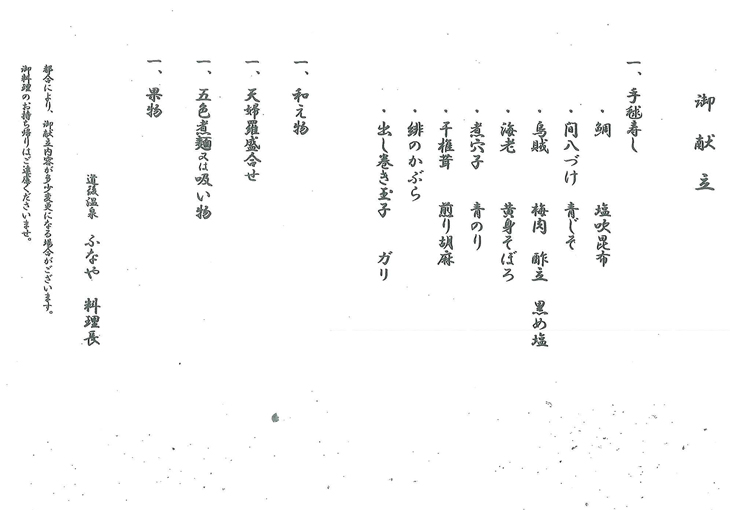 御献立
一、手毬寿し
・鯛 塩吹昆布
・間八づけ 青じそ
・烏賊 梅肉 酢立 黒め塩
・海老 黄身そぼろ
・煮穴子 青のり
・干椎茸 煎り胡麻
・緋のかぶら
・出し巻き玉子 ガリ
一、和え物
一、天婦羅盛合せ
一、五色煮麺又は吸い物
一、果物
道後温泉 ふなや 料理長
都合により、御献立内容が多少変更になる場合がございます。
御料理のお持ち帰りはご遠慮くださいませ。